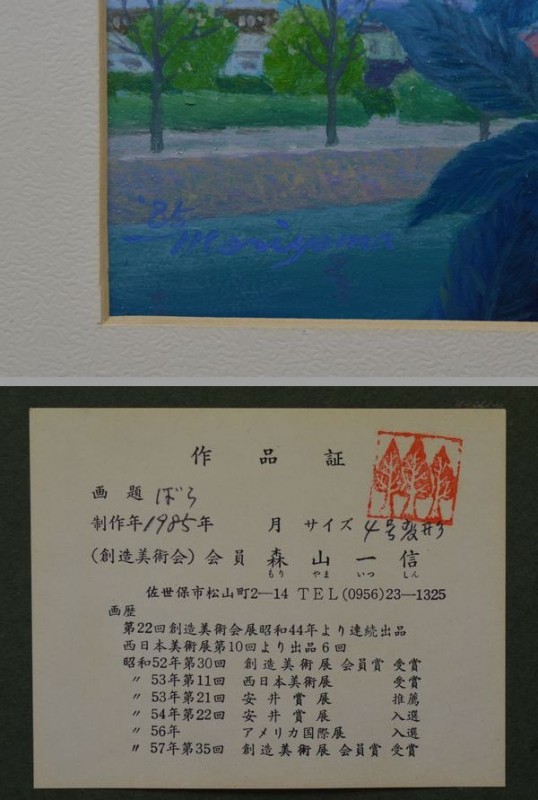 '85
Moriyama
作品証
画題 ばら
制作年 1985年 月 サイズ 4号変形
(創造美術会) 会員 森山一信
もり やま いつ しん
佐世保市松山町2―14 TEL(0956)23―1325
画歴
第22回創造美術会展昭和44年より連続出品
西日本美術展第10回より出品6回
昭和52年第30回 創造美術展 会員賞 受賞
〃 53年第11回 西日本美術展 受賞
〃 53年第21回 安井賞展 推薦
〃 54年第22回 安井賞展 入選
〃 56年 アメリカ国際展 入選
〃 57年第35回 創造美術展 会員賞 受賞